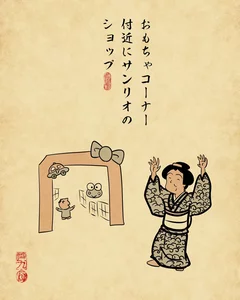 おもちゃコーナー
付近にサンリオの
ショップ